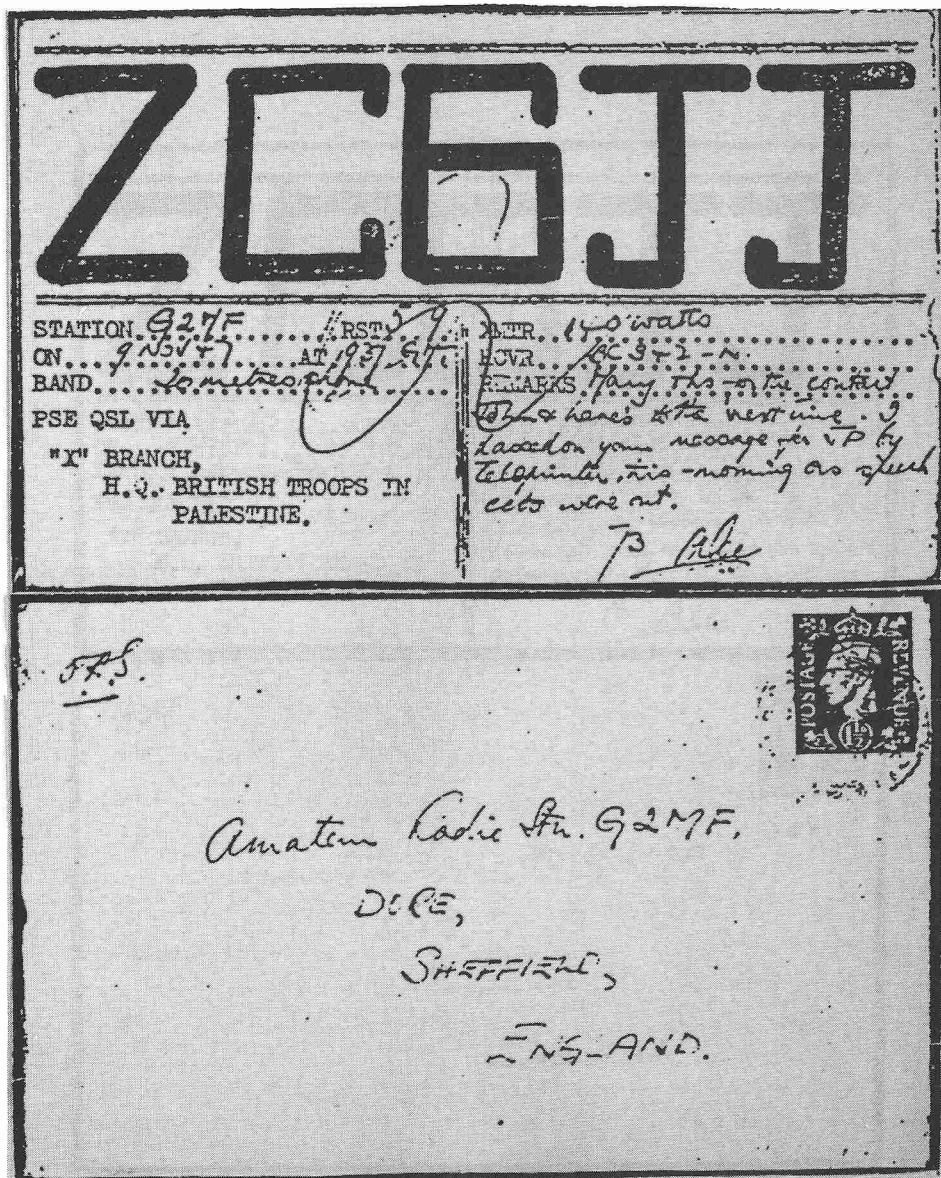 ZC6JJ
STATION G2MF RST 5 9
ON 9 NOV 47 AT 1937 GT.
BAND metres
PSE QSL VIA
"X" BRANCH,
H.Q. BRITISH TROOPS IN
PALESTINE.
XMTR 140 watts
RCVR 342-N.
REMARKS Many tks for the contact
& here's to the next time. I
passed on your message for JP by
teleprinter, this morning as speech
ccts were out.
73
F.A.S.
POSTAGE REVENUE
1½
Amateur Radio Stn. G2MF.
DORE,
SHEFFIELD,
ENGLAND.